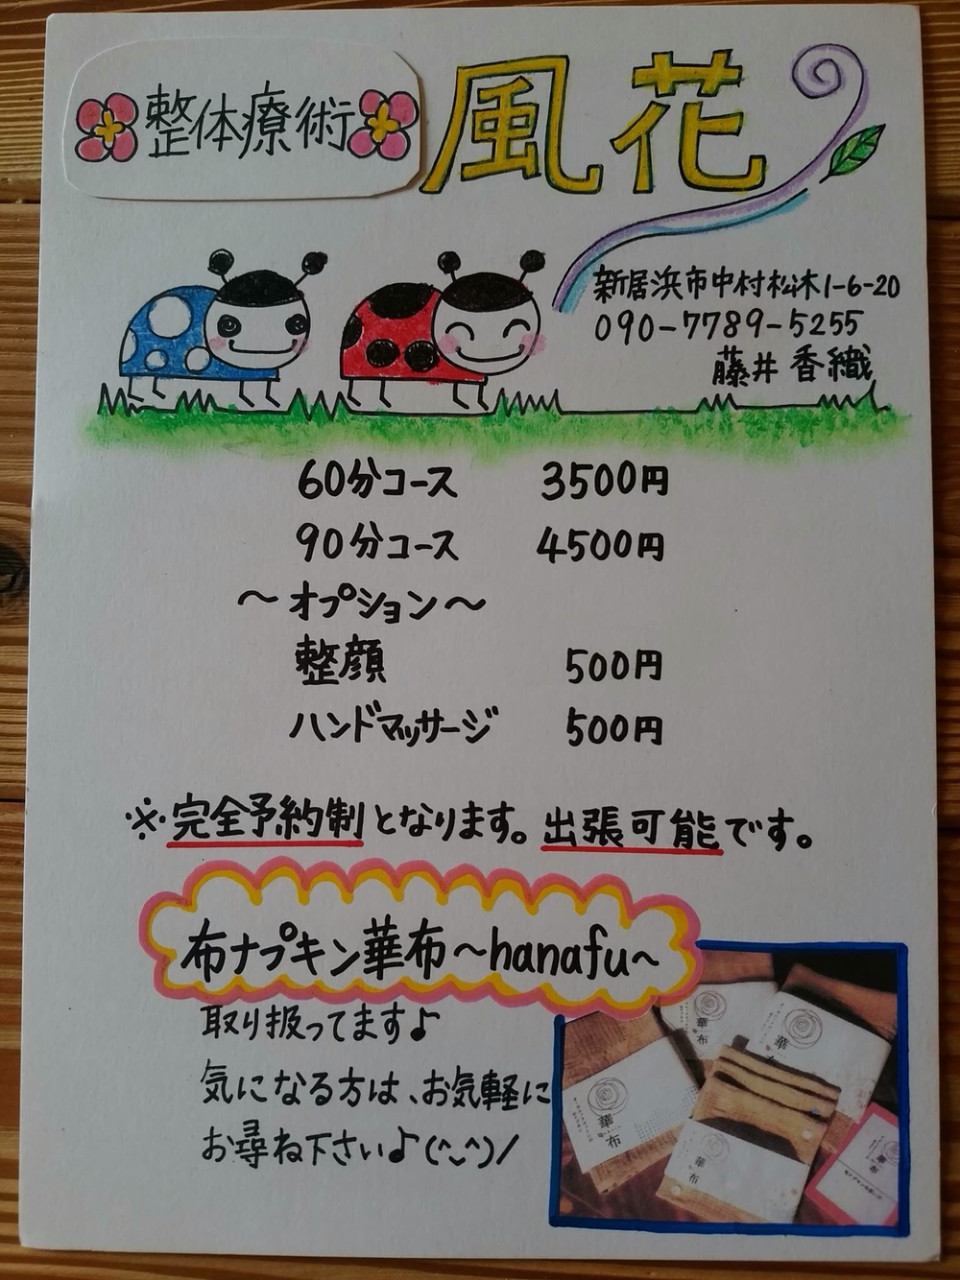 整体療術
風花
新居浜市中村松木1-6-20
090-7789-5255
藤井 香織
60分コース 3500円
90分コース 4500円
～オプション～
整顔 500円
ハンドマッサージ 500円
※完全予約制となります。出張可能です。
布ナプキン華布～hanafu～
取り扱ってます♪
気になる方は、お気軽に
お尋ね下さい♪(^_^)/
華布
華布
華布
華布
華布